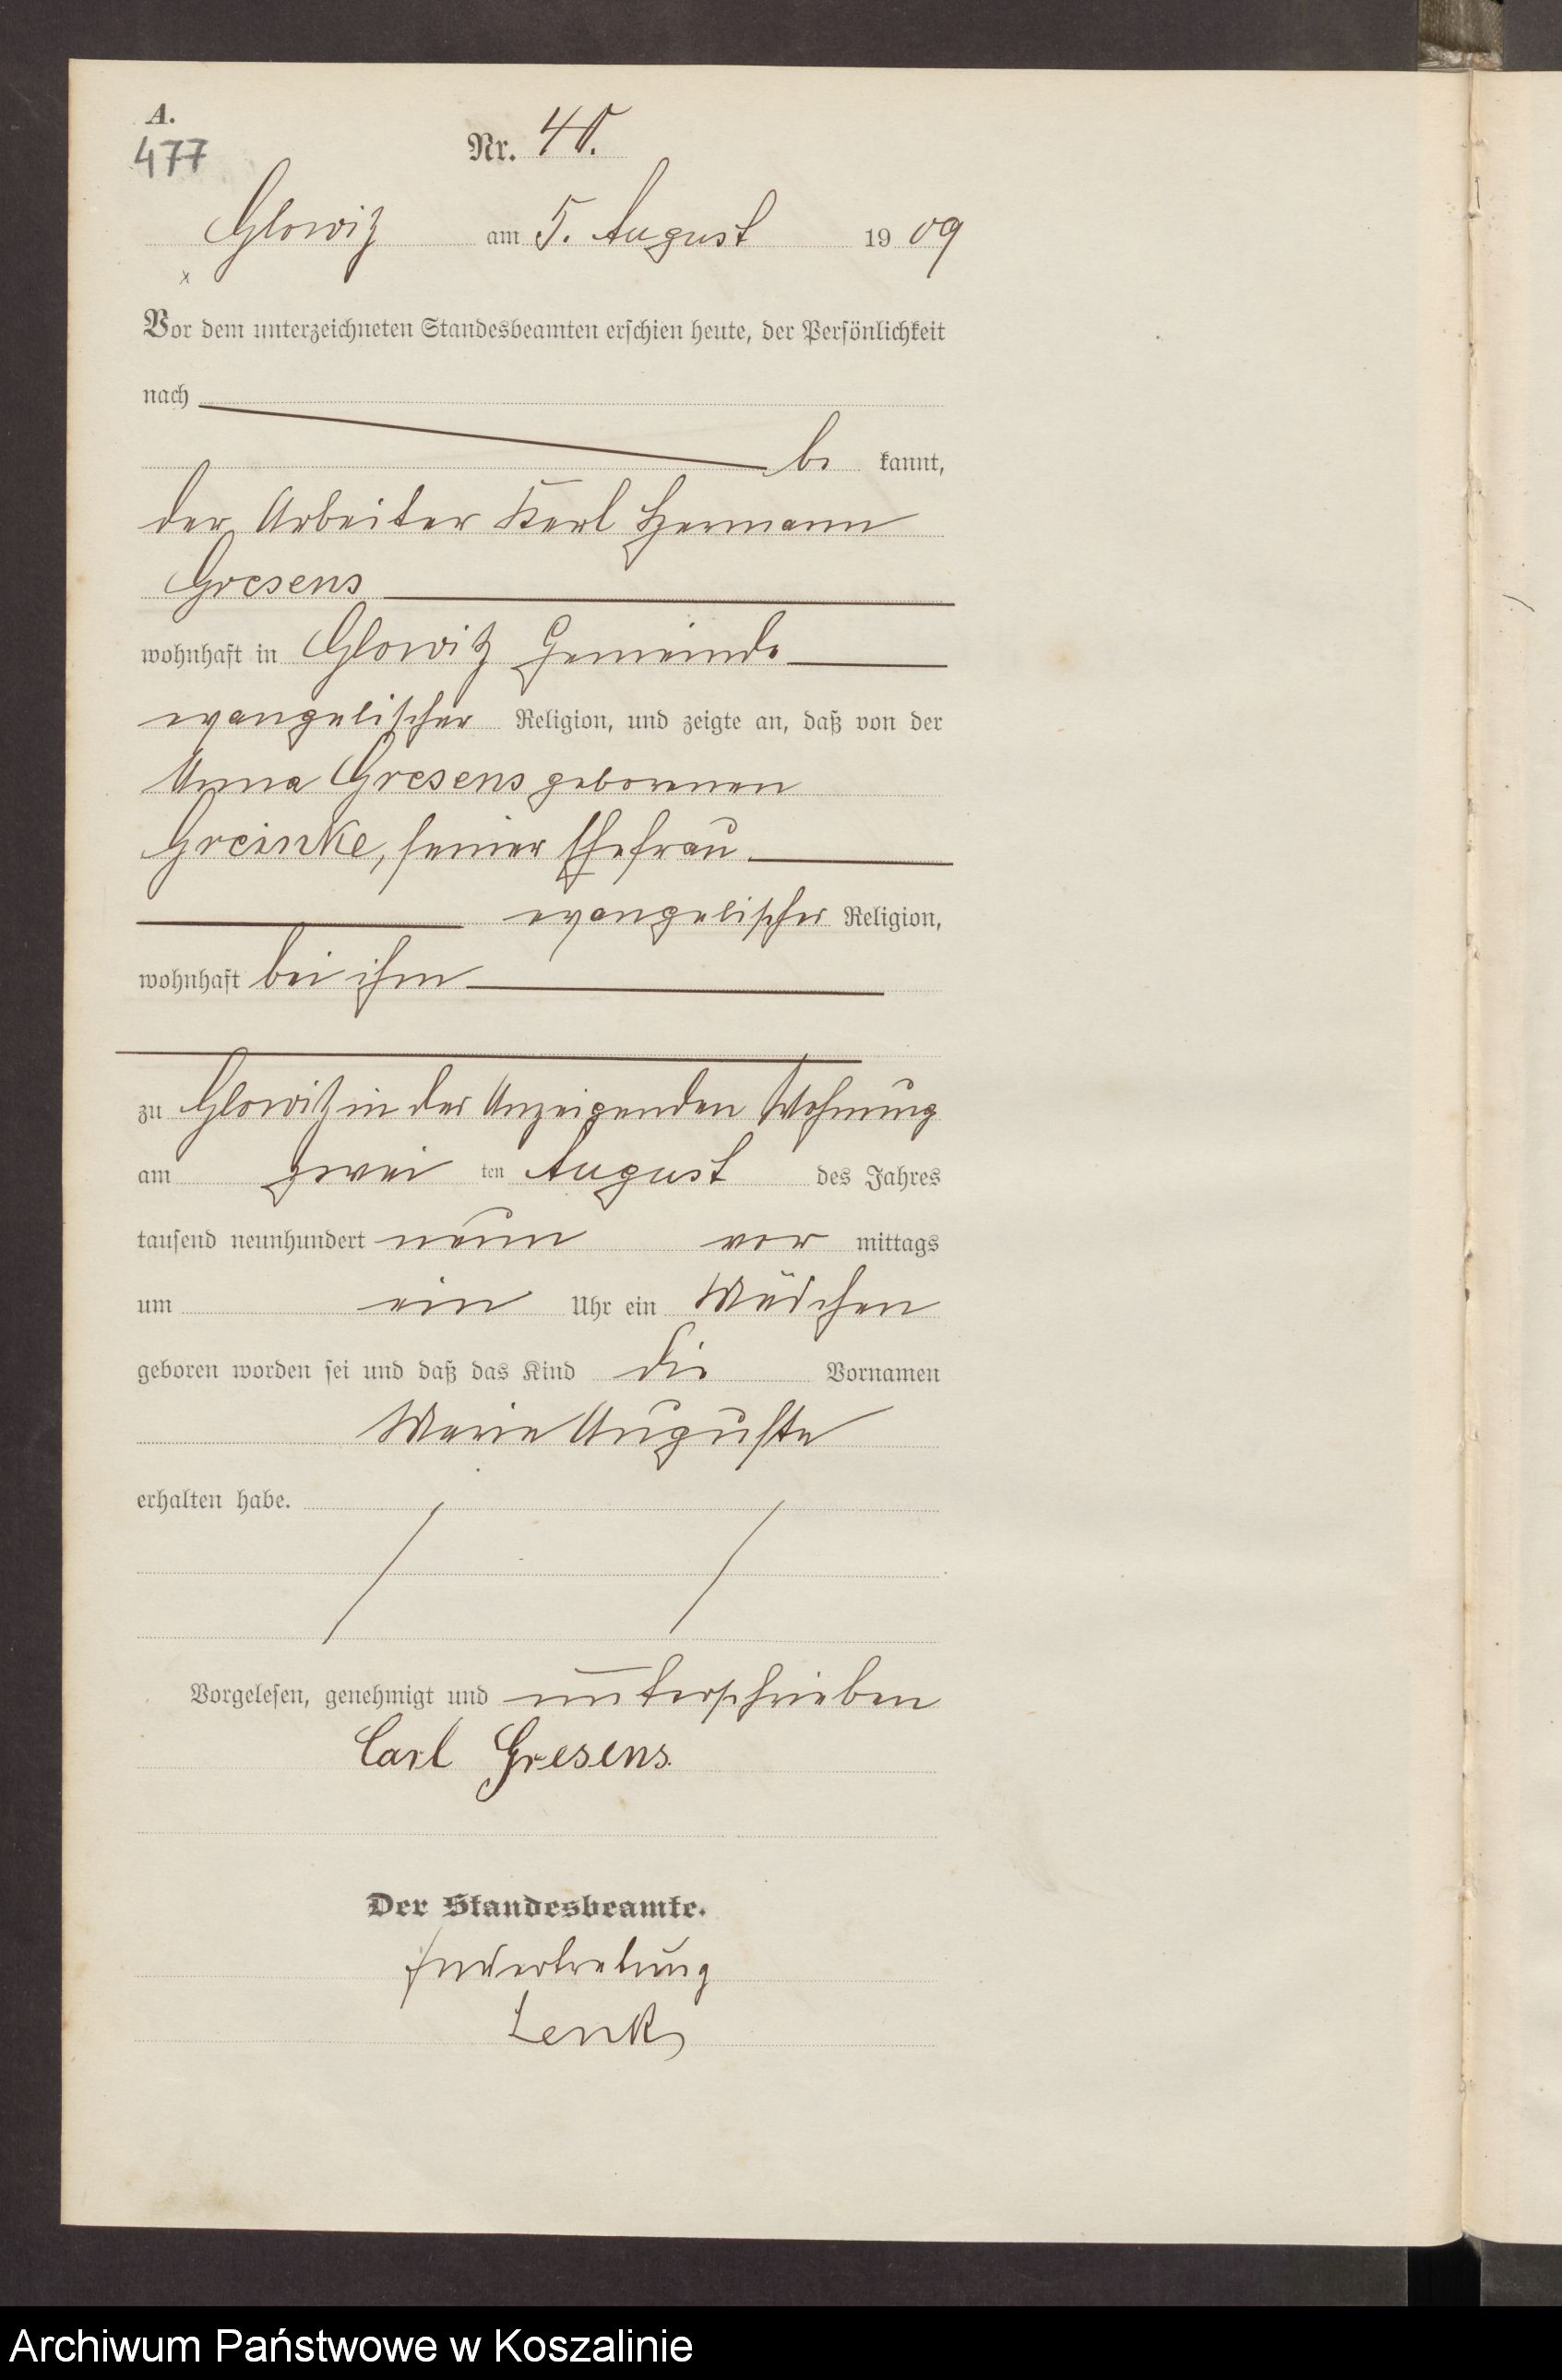 A.
477
Nr. 40.
Glowitz am 5. August 1909
x
Vor dem unterzeichneten Standesbeamten erschien heute, der Persönlichkeit
nach
be kannt,
der Arbeiter Karl Hermann
Gresens
wohnhaft in Glowitz Gemeinde
evangelischer Religion, und zeigte an, daß von der
Anna Gresens geborenen
Greinke, seiner Ehefrau
evangelischer Religion,
wohnhaft bei ihm
zu Glowitz in der Anzeigenden Wohnung
am zwei ten August des Jahres
tausend neunhundert neun vor mittags
um ein Uhr ein Mädchen
geboren worden sei und daß das Kind die Vornamen
Marie Auguste
erhalten habe.
Vorgelesen, genehmigt und unterschrieben
Carl Gresens.
Der Standesbeamte.
In Vertretung
Lenk
Archiwum Państwowe w Koszalinie